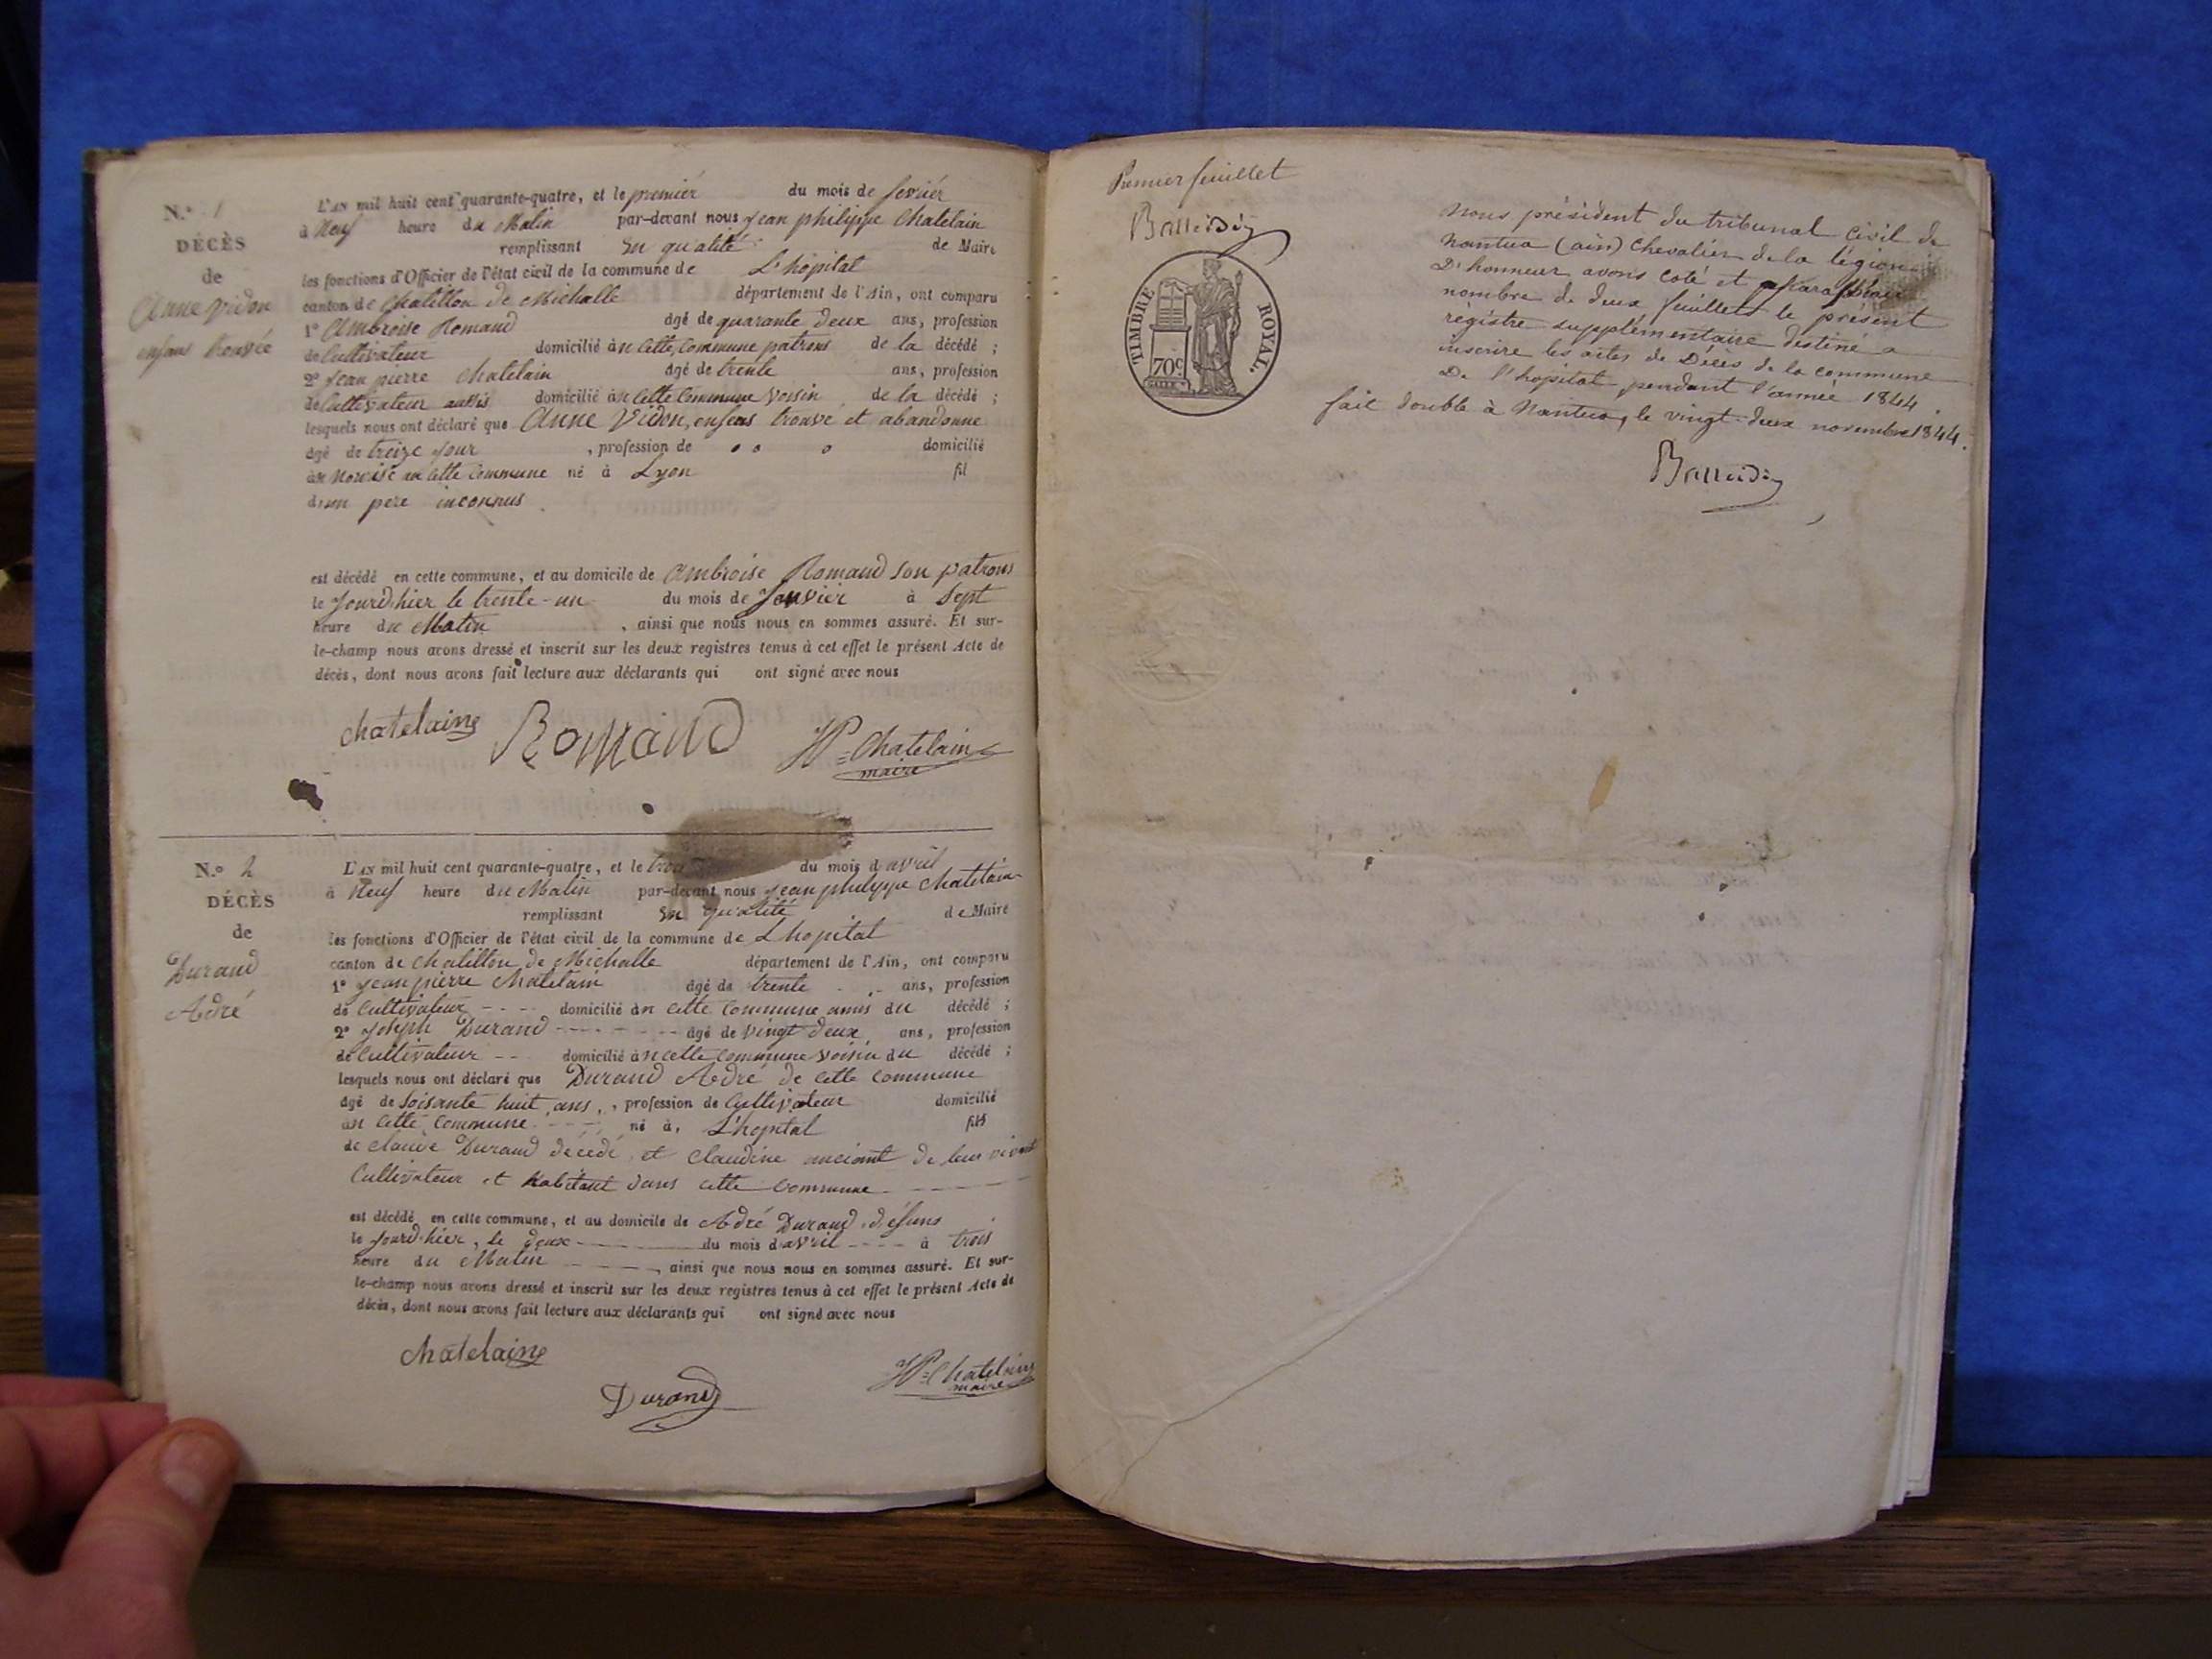 N.° 1
DÉCÈS
de
Anne Vidon
enfans trouvée
L'AN mil huit cent quarante-quatre, et le premiér du mois de fevriér
à Neuf heure du Matin par-devant nous Jean philippe Chatelain
remplissant En qu'alité de Maire
les fonctions d'Officier de l'état civil de la commune de L'hôpital
canton de Chatillon de Michalle département de l'Ain, ont comparu
1° Ambroise Romand âgé de quarante deux ans, profession
de Cultivateur domicilié àn Cette Commune patrons de la décédé ;
2° Jean pierre Chatelain âgé de trente ans, profession
de Cultivateur domicilié àn Cette Commune Voisin de la décédé ;
lesquels nous ont déclaré que Anne Vidon, enfans trouve et abandonne
âgé de treize Jour , profession de domicilié
àn cette Commune né à Lyon fil
d'un pere inconnus
est décédé en cette commune, et au domicile de Ambroise Romand Son patrons
le Jourd-hier le trente-un du mois de Janvier à Sept
heure du Matin , ainsi que nous nous en sommes assuré. Et sur-
le-champ nous avons dressé et inscrit sur les deux registres tenus à cet effet le présent Acte de
décès, dont nous avons fait lecture aux déclarants qui ont signé avec nous
chatelaine Romand JP=Chatelain
maire
N.° 2
DÉCÈS
de
Durand
Adré
L'AN mil huit cent quarante-quatre, et le trois du mois d'avril
à Neuf heure du Matin par-devant nous Jean philippe Chatelain
remplissant En qu'alité de Maire
les fonctions d'Officier de l'état civil de la commune de L'hopital
canton de Chatillon de Michalle département de l'Ain, ont comparu
1° Jean pierre Chatelain âgé de trente ans, profession
de Cultivateur - - - domicilié àn cette Commune amis du décédé ;
2° Joseph Durand - - - - - - âgé de Vingt deux ans, profession
de Cultivateur - - domicilié àn cette Commune voisin du décédé ;
lesquels nous ont déclaré que Durand Adré de Cette Commune
âgé de Soisante huit ans, , profession de Cultivateur domicilié
àn Cette Commune - - - né à, L'hopital fils
de Claude Durand décédé et Claudine anciant de leur vivant
Cultivateur et habitant dans cette Commune
est décédé en cette commune, et au domicile de Adré Durand défuns
le Jourd-hier, le deux du mois d'avril - - - - à trois
heure du Matin , ainsi que nous nous en sommes assuré. Et sur-
le-champ nous avons dressé et inscrit sur les deux registres tenus à cet effet le présent Acte de
décès, dont nous avons fait lecture aux déclarants qui ont signé avec nous
chatelaine
Durand
JP=Chatelain
maire
Premier feuillet
TIMBRE ROYAL.
70c
Nous président du tribunal civil de
Nantua (ain) Chevalier de la légion
D'honneur avons coté et
nombre de deux feuillets le présent
régistre supplémentaire destiné a
inscrire les actes de Décès de la commune
De l'hopital pendant l'année 1844.
fait double à Nantua, le vingt-deux novembre 1844.